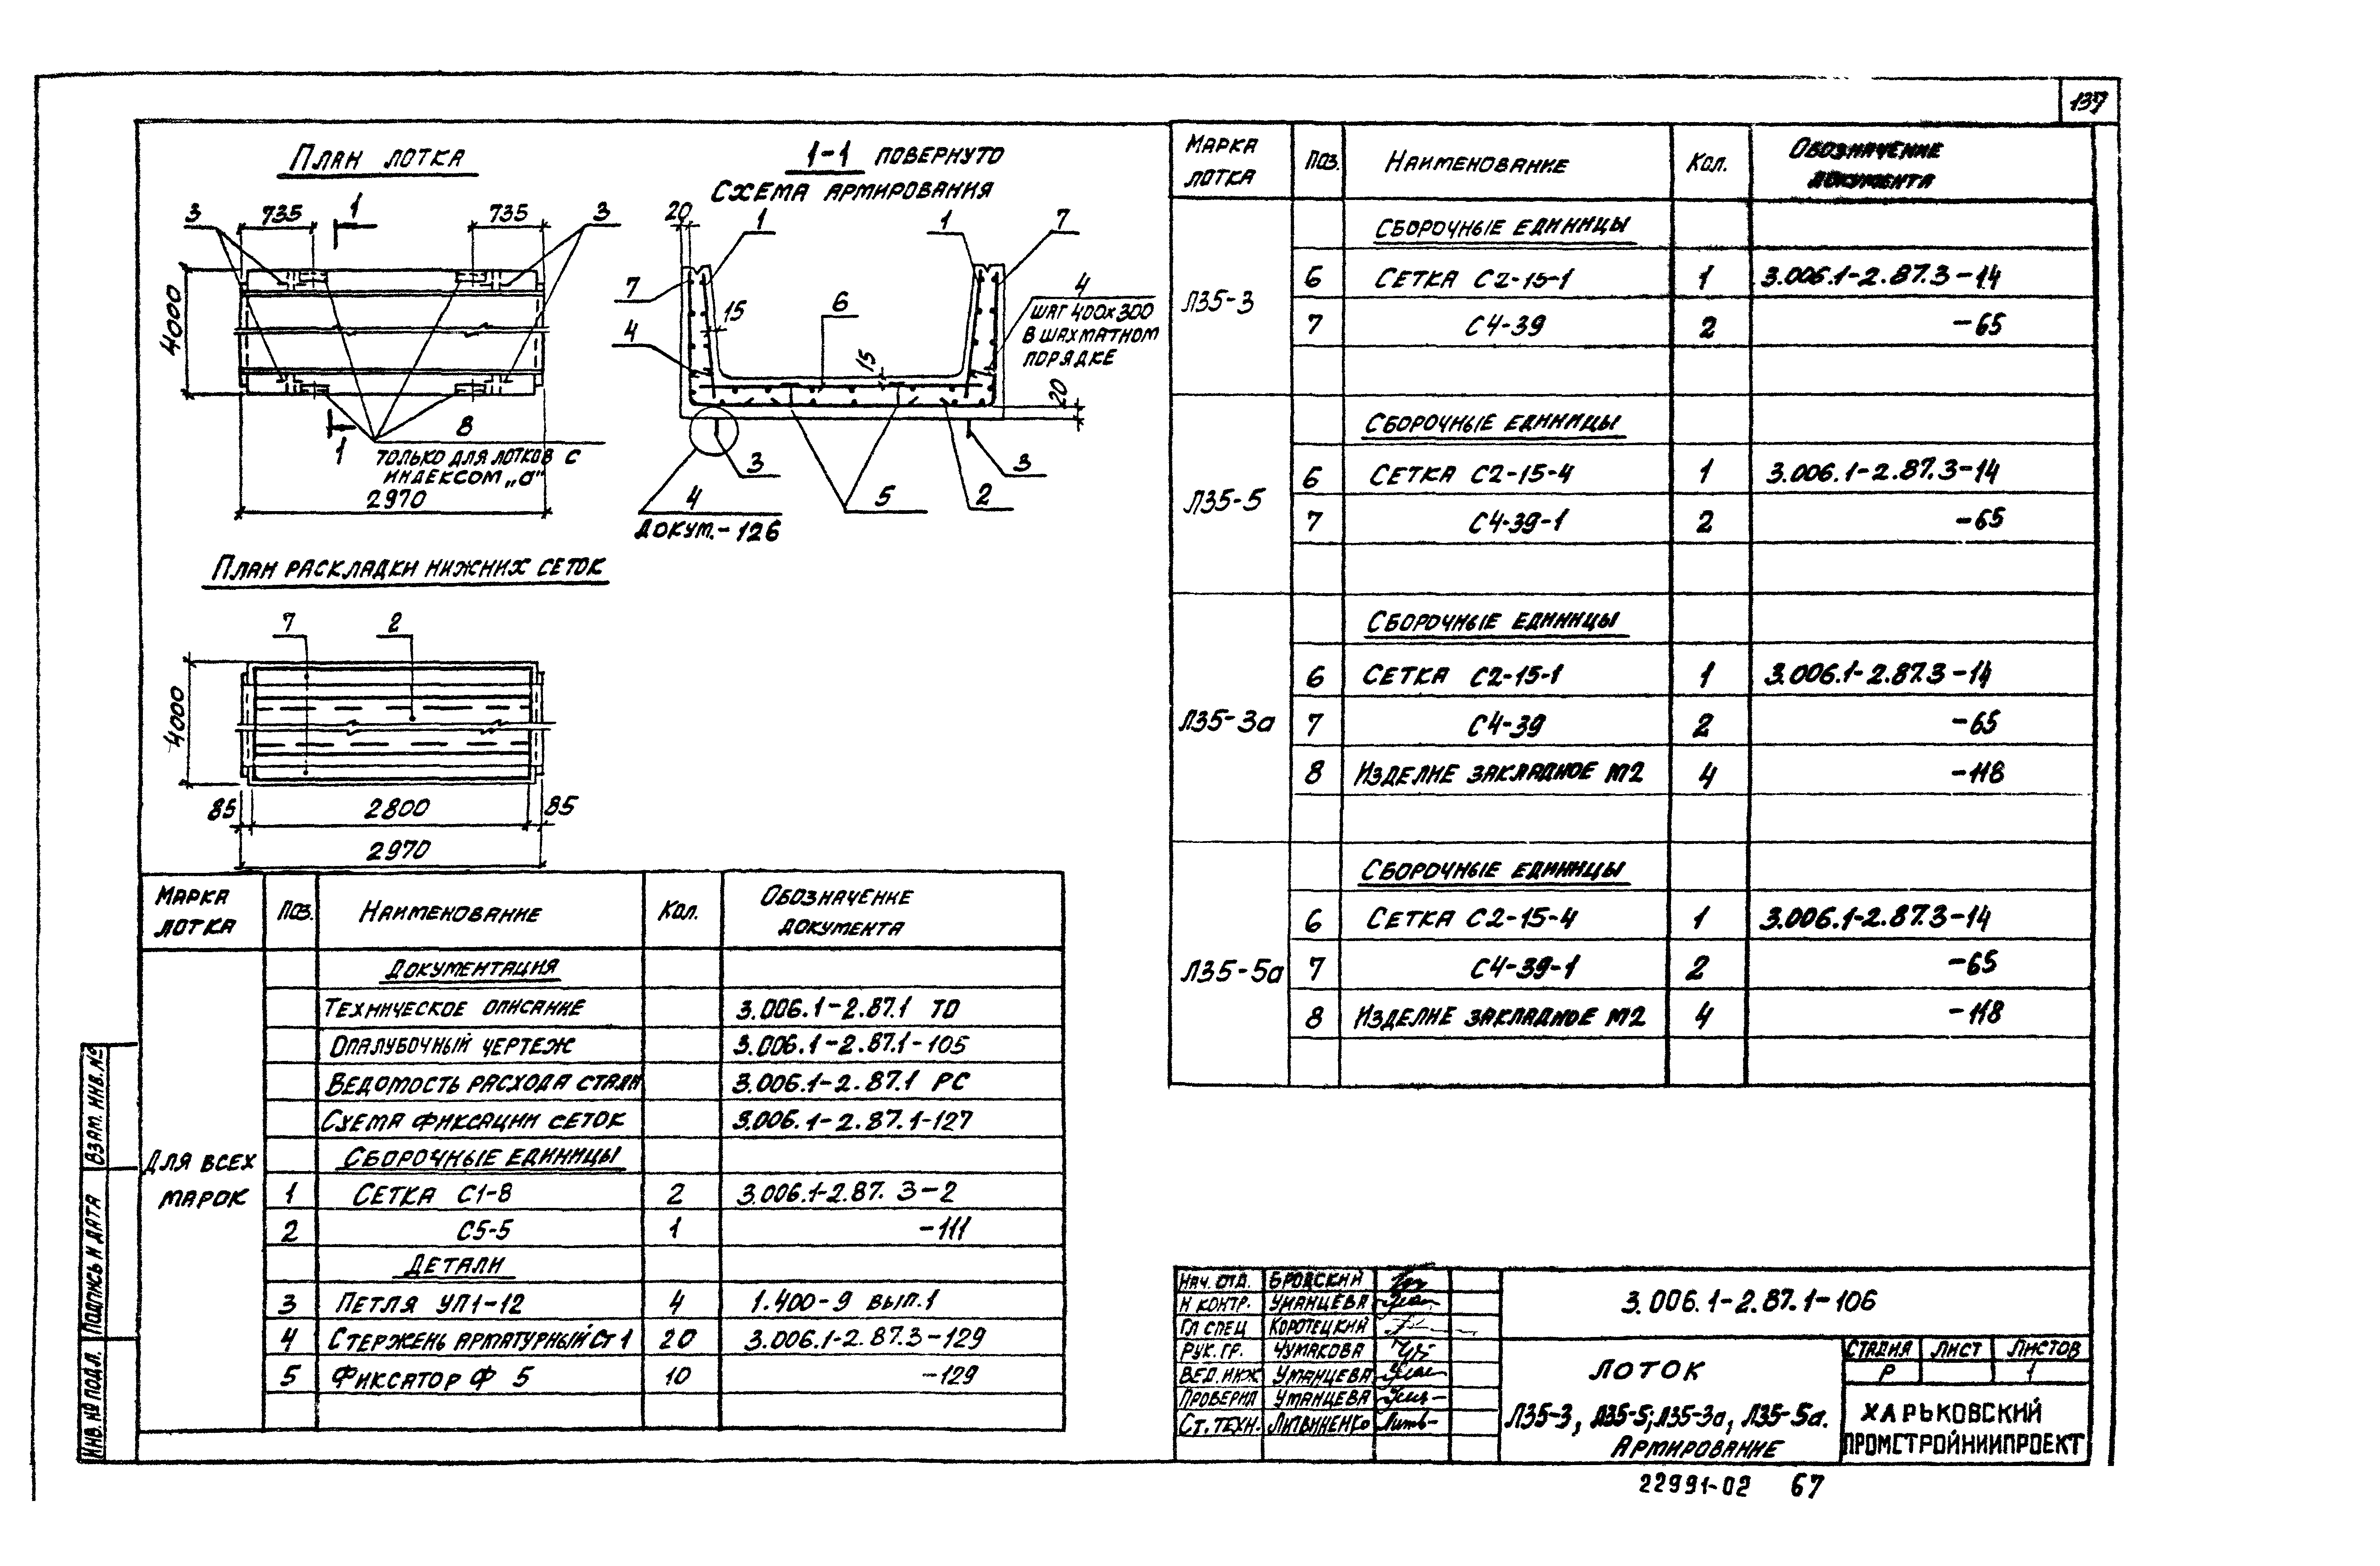 137
План лотка
3
735
1
735
3
4000
8
1
только для лотков с
индексом „а“
2970
1-1 повернуто
Схема армирования
20
1
1
7
7
4
шаг 400х300
в шахматном
порядке
15
6
4
15
20
3
3
4
5
2
Докум.-126
План раскладки нижних сеток
7
2
4000
85
2800
85
2970
Марка лотка | Поз. | Наименование | Кол. | Обозначение документа
Для всех марок
Документация
Техническое описание 3.006.1-2.87.1 ТО
Опалубочный чертеж 3.006.1-2.87.1-105
Ведомость расхода стали 3.006.1-2.87.1 РС
Схема фиксации сеток 3.006.1-2.87.1-127
Сборочные единицы
1 Сетка С1-8 2 3.006.1-2.87.3-2
2 С5-5 1 -111
Детали
3 Петля УП1-12 4 1.400-9 вып.1
4 Стержень арматурный Ст1 20 3.006.1-2.87.3-129
5 Фиксатор Ф 5 10 -129
Марка лотка | Поз. | Наименование | Кол. | Обозначение документа
Л35-3
Сборочные единицы
6 Сетка С2-15-1 1 3.006.1-2.87.3-14
7 С4-39 2 -65
Л35-5
Сборочные единицы
6 Сетка С2-15-4 1 3.006.1-2.87.3-14
7 С4-39-1 2 -65
Л35-3а
Сборочные единицы
6 Сетка С2-15-1 1 3.006.1-2.87.3-14
7 С4-39 2 -65
8 Изделие закладное М2 4 -118
Л35-5а
Сборочные единицы
6 Сетка С2-15-4 1 3.006.1-2.87.3-14
7 С4-39-1 2 -65
8 Изделие закладное М2 4 -118
Нач. отд. Бродский
Н контр. Уманцева
Гл спец Коротецкий
Рук. гр. Чумакова
Вед. инж Уманцева
Проверил Уманцева
Ст. техн. Литвиненко
3.006.1-2.87.1-106
Лоток
Л35-3, Л35-5; Л35-3а, Л35-5а.
Армирование
Стадия Лист Листов
Р 1
Харьковский
Промстройниипроект
22991-02 67
Взам. инв. №
Подпись и дата
Инв. № подл.